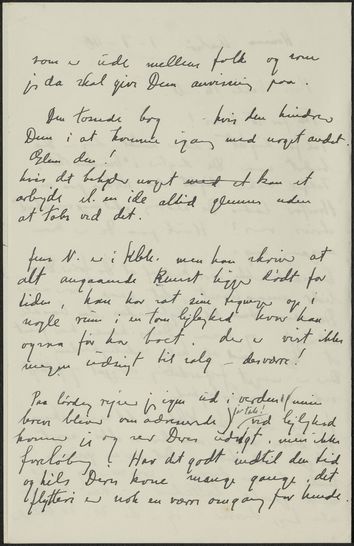 som er ude mellem folk og som
jeg da skal give Dem anvisning paa.
Den tossede bog hvis den hindrer
Dem i at komme igang med noget andet.
Glem den!
hvis det behøver noget kan et
arbejde el. en ide altid glemmes uden
at tabes ved det.
Jens N. er i Kbh. men han skriver at
alt angaaende kunst ligger dødt for
tiden, han har sat sine tegninger op i
nogle rum i en tom lejlighed hvor han
ogsaa før har boet. der er vist ikke
megen udsigt til salg – desværre!
Paa lørdag rejser jeg igen ud i verden (mine
breve bliver omadresserede tak!) ved lejlighed
kommer jeg og ser Deres udsigt, men ikke
foreløbig. Hav det godt indtil den tid
og hils Deres kone mange gange, det
flytteri er nok en værre omgang for hende.